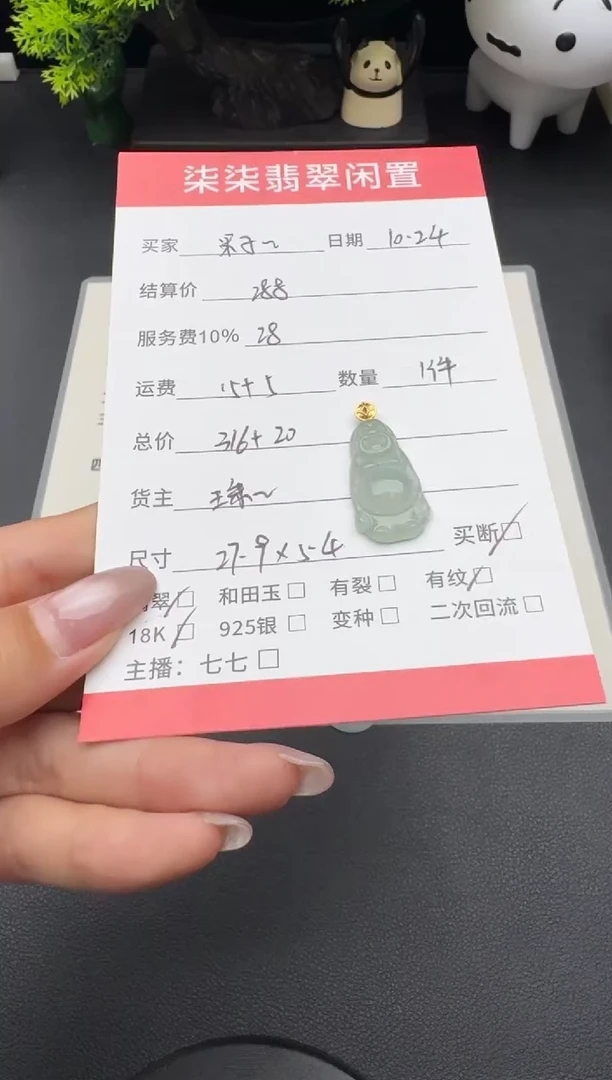 柒柒翡翠闲置
买家 日期 10-24
结算价 288
服务费10% 28
运费 15+5 数量 1件
总价 316+20
货主
尺寸 27-9×5-4 买断
翡翠 和田玉 有裂 有纹
18K 925银 变种 二次回流
主播：七七